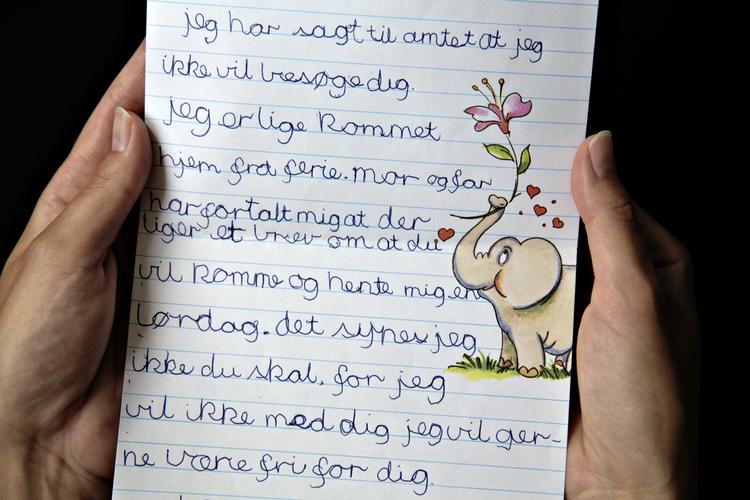 jeg har sagt til amtet at jeg
ikke vil besøge dig.
jeg er lige kommet
hjem fra ferie. mor og far
har fortalt mig at der
liger et brev om at du
vil komme og hente mig en
lørdag. det synes jeg
ikke du skal. for jeg
vil ikke med dig jeg vil ger-
ne være fri for dig.